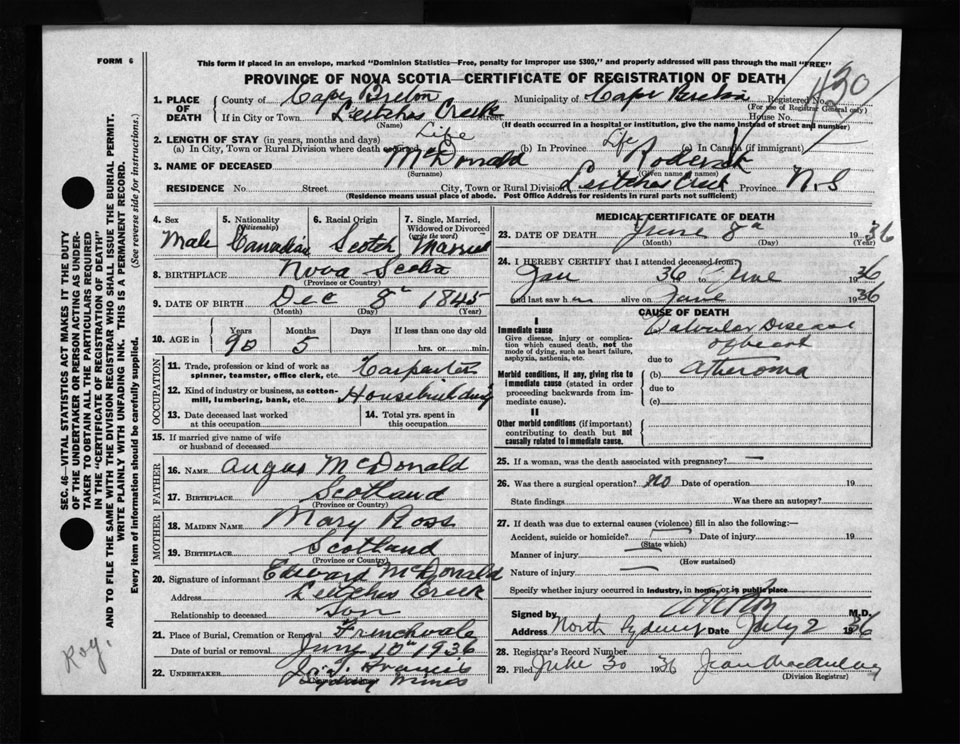 FORM 6
This form if placed in an envelope, marked "Dominion Statistics—Free, penalty for improper use $300," and properly addressed will pass through the mail "FREE"
PROVINCE OF NOVA SCOTIA—CERTIFICATE OF REGISTRATION OF DEATH
430
1. PLACE OF DEATH County of Cape Breton Municipality of Cape Breton Registered No.
(For use of Registrar General only)
If in City or Town Leitches Creek Street House No.
(Name) (If death occurred in a hospital or institution, give the name instead of street and number)
2. LENGTH OF STAY (in years, months and days)
(a) In City, Town or Rural Division where death occurred Life (b) In Province Life (c) In Canada (if immigrant)
3. NAME OF DECEASED McDonald Roderick
(Surname) (Given name or names)
RESIDENCE No. Street City, Town or Rural Division Leitches Creek Province N.S
(Residence means usual place of abode. Post Office Address for residents in rural parts not sufficient)
4. Sex Male
5. Nationality (Citizenship) Canadian
6. Racial Origin Scotch
7. Single, Married, Widowed or Divorced (write the word) Married
8. BIRTHPLACE Nova Scotia
(Province or Country)
9. DATE OF BIRTH Dec 8 1845
(Month) (Day) (Year)
10. AGE in Years 90 Months 5 Days If less than one day old hrs. or min.
OCCUPATION
11. Trade, profession or kind of work as spinner, teamster, office clerk, etc. Carpenter
12. Kind of industry or business, as cotton-mill, lumbering, bank, etc. Housebuilding
13. Date deceased last worked at this occupation
14. Total yrs. spent in this occupation
15. If married give name of wife or husband of deceased
FATHER
16. NAME Angus McDonald
17. BIRTHPLACE Scotland
(Province or Country)
MOTHER
18. MAIDEN NAME Mary Ross
19. BIRTHPLACE Scotland
(Province or Country)
20. Signature of informant Edward McDonald
Address Leitches Creek
Relationship to deceased Son
21. Place of Burial, Cremation or Removal Frenchvale
Date of burial or removal June 10th 1936
22. UNDERTAKER Francis
Sydney Mines
MEDICAL CERTIFICATE OF DEATH
23. DATE OF DEATH June 8 1936
(Month) (Day) (Year)
24. I HEREBY CERTIFY that I attended deceased from:
Jan 36 to June 1936
and last saw h alive on June 1936
CAUSE OF DEATH
I
Immediate cause
Give disease, injury or complication which caused death, not the mode of dying, such as heart failure, asphyxia, asthenia, etc.
Valvular Disease
of heart
due to
Morbid conditions, if any, giving rise to immediate cause (stated in order proceeding backwards from immediate cause).
(b) Atheroma
due to
(c)
II
Other morbid conditions (if important) contributing to death but not causally related to immediate cause.
25. If a woman, was the death associated with pregnancy? —
26. Was there a surgical operation? no Date of operation 19
State findings Was there an autopsy?
27. If death was due to external causes (violence) fill in also the following:—
Accident, suicide or homicide? Date of injury 19
(State which)
Manner of injury
(How sustained)
Nature of injury
Specify whether injury occurred in industry, in home, or in public place
Signed by M.D.
Address North Sydney Date July 2 1936
28. Registrar's Record Number
29. Filed June 30 1936 Jean MacAulay
(Division Registrar)
SEC. 46—VITAL STATISTICS ACT MAKES IT THE DUTY
OF THE UNDERTAKER OR PERSON ACTING AS UNDER-
TAKER TO OBTAIN ALL THE PARTICULARS REQUIRED
IN THE "CERTIFICATE OF REGISTRATION OF DEATH"
AND TO FILE THE SAME WITH THE DIVISION REGISTRAR WHO SHALL ISSUE THE BURIAL PERMIT.
WRITE PLAINLY WITH UNFADING INK. THIS IS A PERMANENT RECORD.
Every item of information should be carefully supplied. (See reverse side for instructions.)